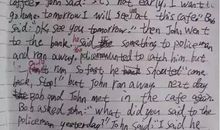 coffee. John said: "It's not early, I want to
go home. tomorrow I will see Pat, this cafe." Bob
said: "OK see you tomorrow." then John went
to the bank. said something to policeman
and ran away, policeman wanted to catch him but
can't run so fast, he shouted "come
back, stop!" but John ran away next day
Bob and John met in the cafe again
Bob asked John: "what did you said to the
policeman yesterday?" John said: "I said he